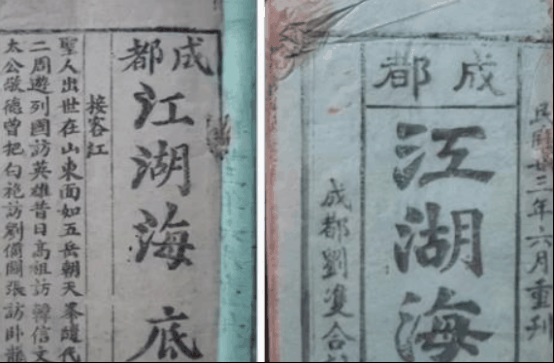 成都
江湖海底
接客江
聖人出世在山東面如五岳朝天
二周遊列國訪英雄昔日高祖訪韓信文
太公敬德曾把白袍訪劉備關張訪卧龍
民國廿三年六月重刊
成都
江湖海
成都劉雙合